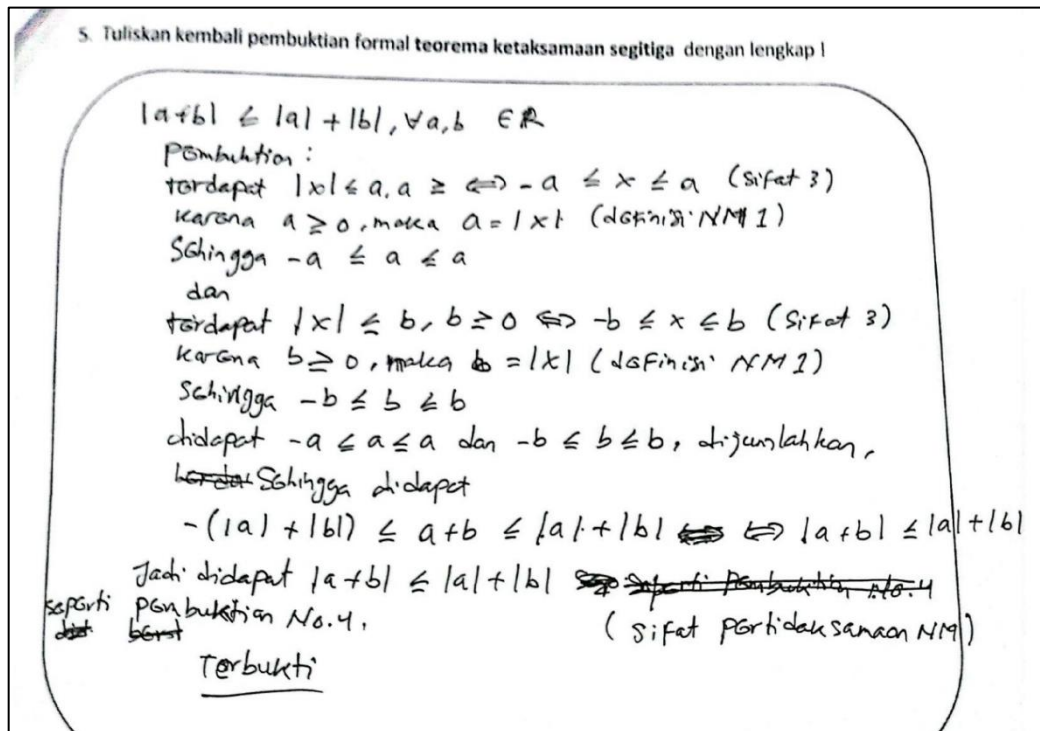 5. Tuliskan kembali pembuktian formal teorema ketaksamaan segitiga dengan lengkap !
|a+b| ≤ |a| + |b|, ∀a,b ∈ R
Pembuktian :
terdapat |x| ≤ a, a ≥ ⟺ -a ≤ x ≤ a (sifat 3)
karena a ≥ 0, maka a = |x| (definisi NM 1)
Sehingga -a ≤ a ≤ a
dan
terdapat |x| ≤ b, b ≥ 0 ⟺ -b ≤ x ≤ b (sifat 3)
karena b ≥ 0, maka b = |x| (definisi NM 1)
Sehingga -b ≤ b ≤ b
didapat -a ≤ a ≤ a dan -b ≤ b ≤ b, dijumlahkan,
Sehingga didapat
-(|a| + |b|) ≤ a+b ≤ |a| + |b| ⟺ |a+b| ≤ |a|+|b|
Jadi didapat |a+b| ≤ |a|+|b| seperti pembuktian No.4
seperti pembuktian No.4. (sifat pertidaksamaan NM)
Terbukti